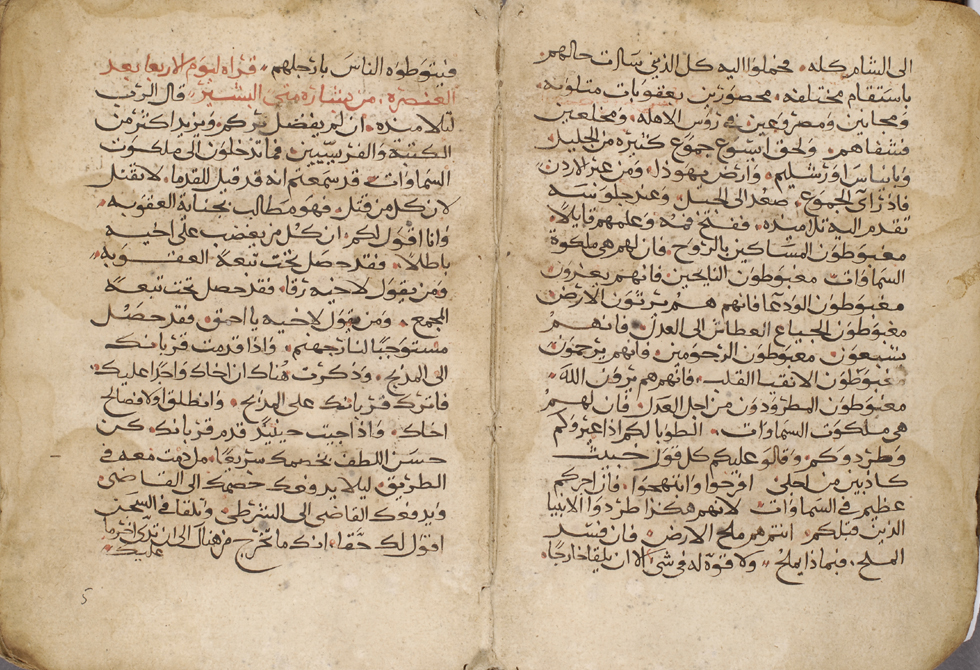 الى الشام كله. فحملوا اليه كل الذين ساات حالهم
باسقام مختلفه. محصورين بعقوبات متلونه
ومجانين ومصروعين في روس الاهله. ومخلعين
فشفاهم. ولحق ايسوع جموع كثيره من الجليل
وباناس اورشليم. وارض يهوذا. ومن عبر الاردن
فاذ راى الجموع. صعد الى الجبل. وعند جلوسه
تقدم اليه تلاميذه. ففتح فمه وعلمهم قايلا.
مغبوطون المساكين بالروح. فان لهم هي ملكوة
السماوات. مغبوطون النايحين فانهم يعزون
مغبوطون الودعا فانهم هم يرتون الارض
مغبوطون الجياع العطاش الى العدل. فانهم
يشبعون. مغبوطون الرحومين. فانهم يرحمون
مغبوطون الانقيا القلب. فانهم هم يرون الله
مغبوطون المطرودون من اجل العدل. فان لهم
هي ملكوت السماوات. الطوبا لكم اذا عيروكم
وطردوكم. وقالو عليكم كل قول خبيث
كاذبين من اجلي. افرحوا وابتهجوا. فان اجركم
عظيم في السماوات. لانهم هكذا طردوا الانبيا
الذين قبلكم. انتم هم ملح الارض. فان فسد
الملح. فبماذا يملح. ولا قوة له في شي الا ان يلقا خارجا.
فيتوطوه الناس بارجلهم. قراه ليوم الاربعا بعد
العنصره. من بشارة متى البشير. قال الرب
لتلاميذه. ان لم يفضل بركم. ويزيد اكثر من
الكتبة والفريسيين. فما تدخلون الى ملكوت
السماوات. قد سمعتم انه قد قيل للقدما. لا تقتل
لان كل من قتل. فهو مطالب بجناية العقوبه.
وانا اقول لكم. ان كل من يغضب على اخيه
باطلا. فقد حصل تحت تبعة العقوبه
ومن يقول لاخيه رقا. فقد حصل تحت تبعة
المجمع. ومن يقول لاخيه يا احمق. فقد حصل
مستوجبا لنار جهنم. واذا قدمت قربانك
الى المذبح. وذكرت هناك ان اخاك واجدا عليك.
فاترك قربانك على المذبح. وانطلق اولا فصالح
اخاك. واذا جيت حينيذ قدم قربانك. كن
حسن اللطف بخصمك سريعا. ما دمت معه في
الطريق. ليلا يدفعك خصمك الى القاضي.
ويدفعك القاضي الى الشرطي. وتلقا في السجن
اقول لك حقا. انك ما تخرج من هناك الى ان تدي اخر ما
عليك
5